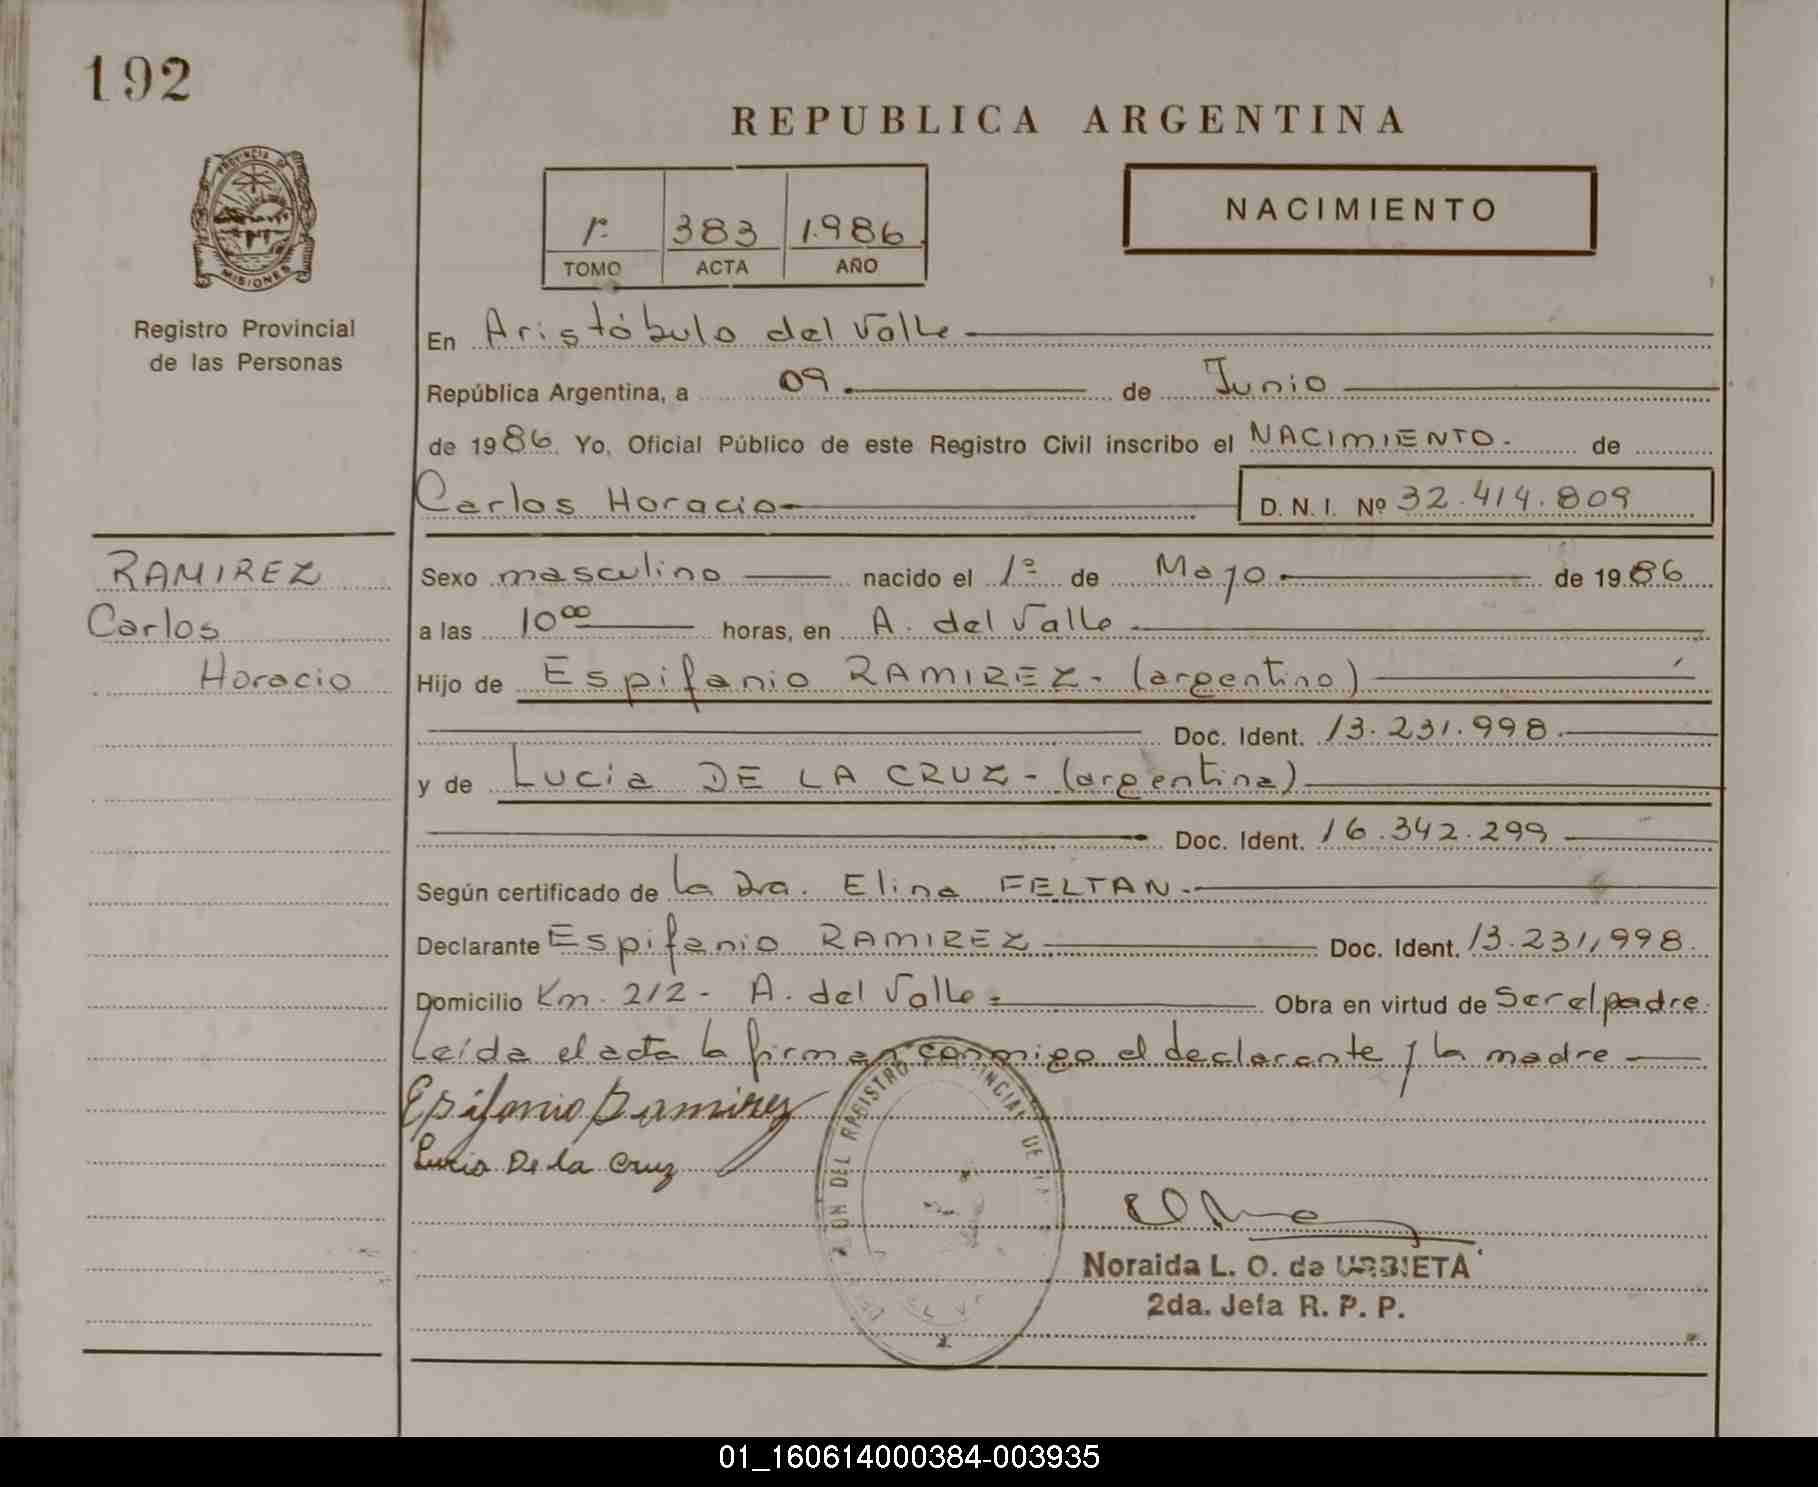 192
REPUBLICA ARGENTINA
PROVINCIA DE
MISIONES
Registro Provincial
de las Personas
1º 383 1.986
TOMO ACTA AÑO
NACIMIENTO
En Aristóbulo del Valle
República Argentina, a 09 de Junio
de 1986. Yo, Oficial Público de este Registro Civil inscribo el NACIMIENTO. de
Carlos Horacio D. N. I. Nº 32.414.809
RAMIREZ
Carlos
Horacio
Sexo masculino nacido el 1º de Mayo de 1986
a las 10 00 horas, en A. del Valle
Hijo de Espifanio RAMIREZ. (argentino)
Doc. Ident. 13.231.998.
y de Lucia DE LA CRUZ - (argentina)
Doc. Ident. 16.342.299
Según certificado de la Dra. Elina FELTAN.
Declarante Espifanio RAMIREZ Doc. Ident. 13.231,998.
Domicilio Km. 212 - A. del Valle. Obra en virtud de Ser el padre.
Leída el acta la firman conmigo el declarante y la madre
Epifanio Ramirez
Lucia De la Cruz
DEL REGISTRO PROVINCIAL DE
Noraida L. O. de URBIETA
2da. Jefa R. P. P.
01_160614000384-003935